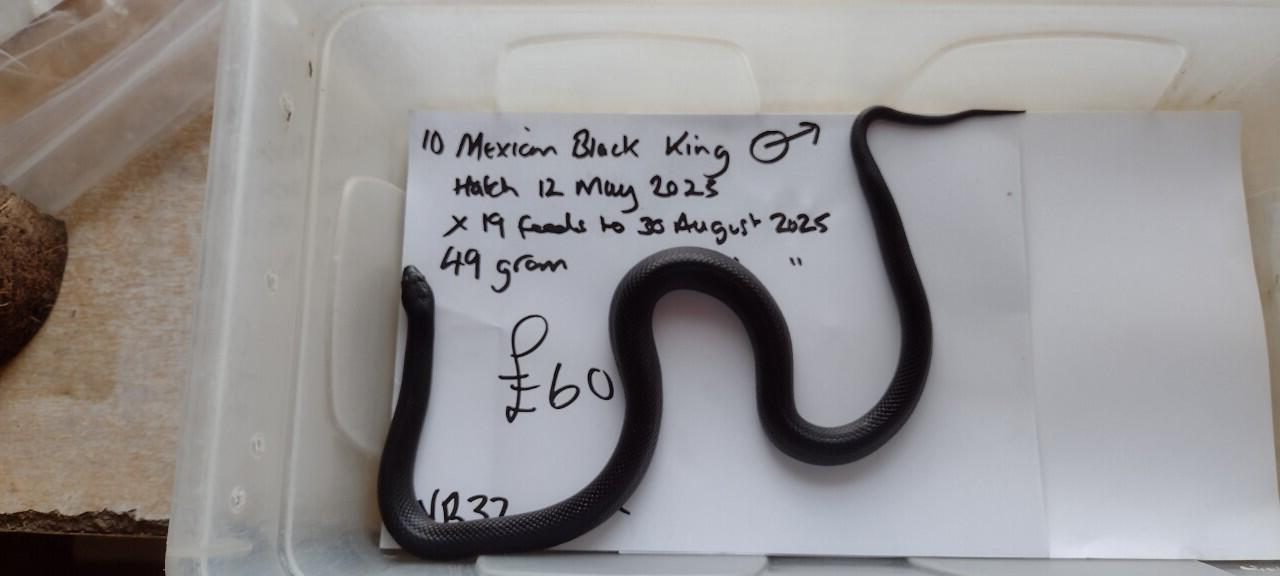 10 Mexican Black King ♂
Hatch 12 May 2025
x 19 feeds to 30 August 2025
49 gram " "
£60